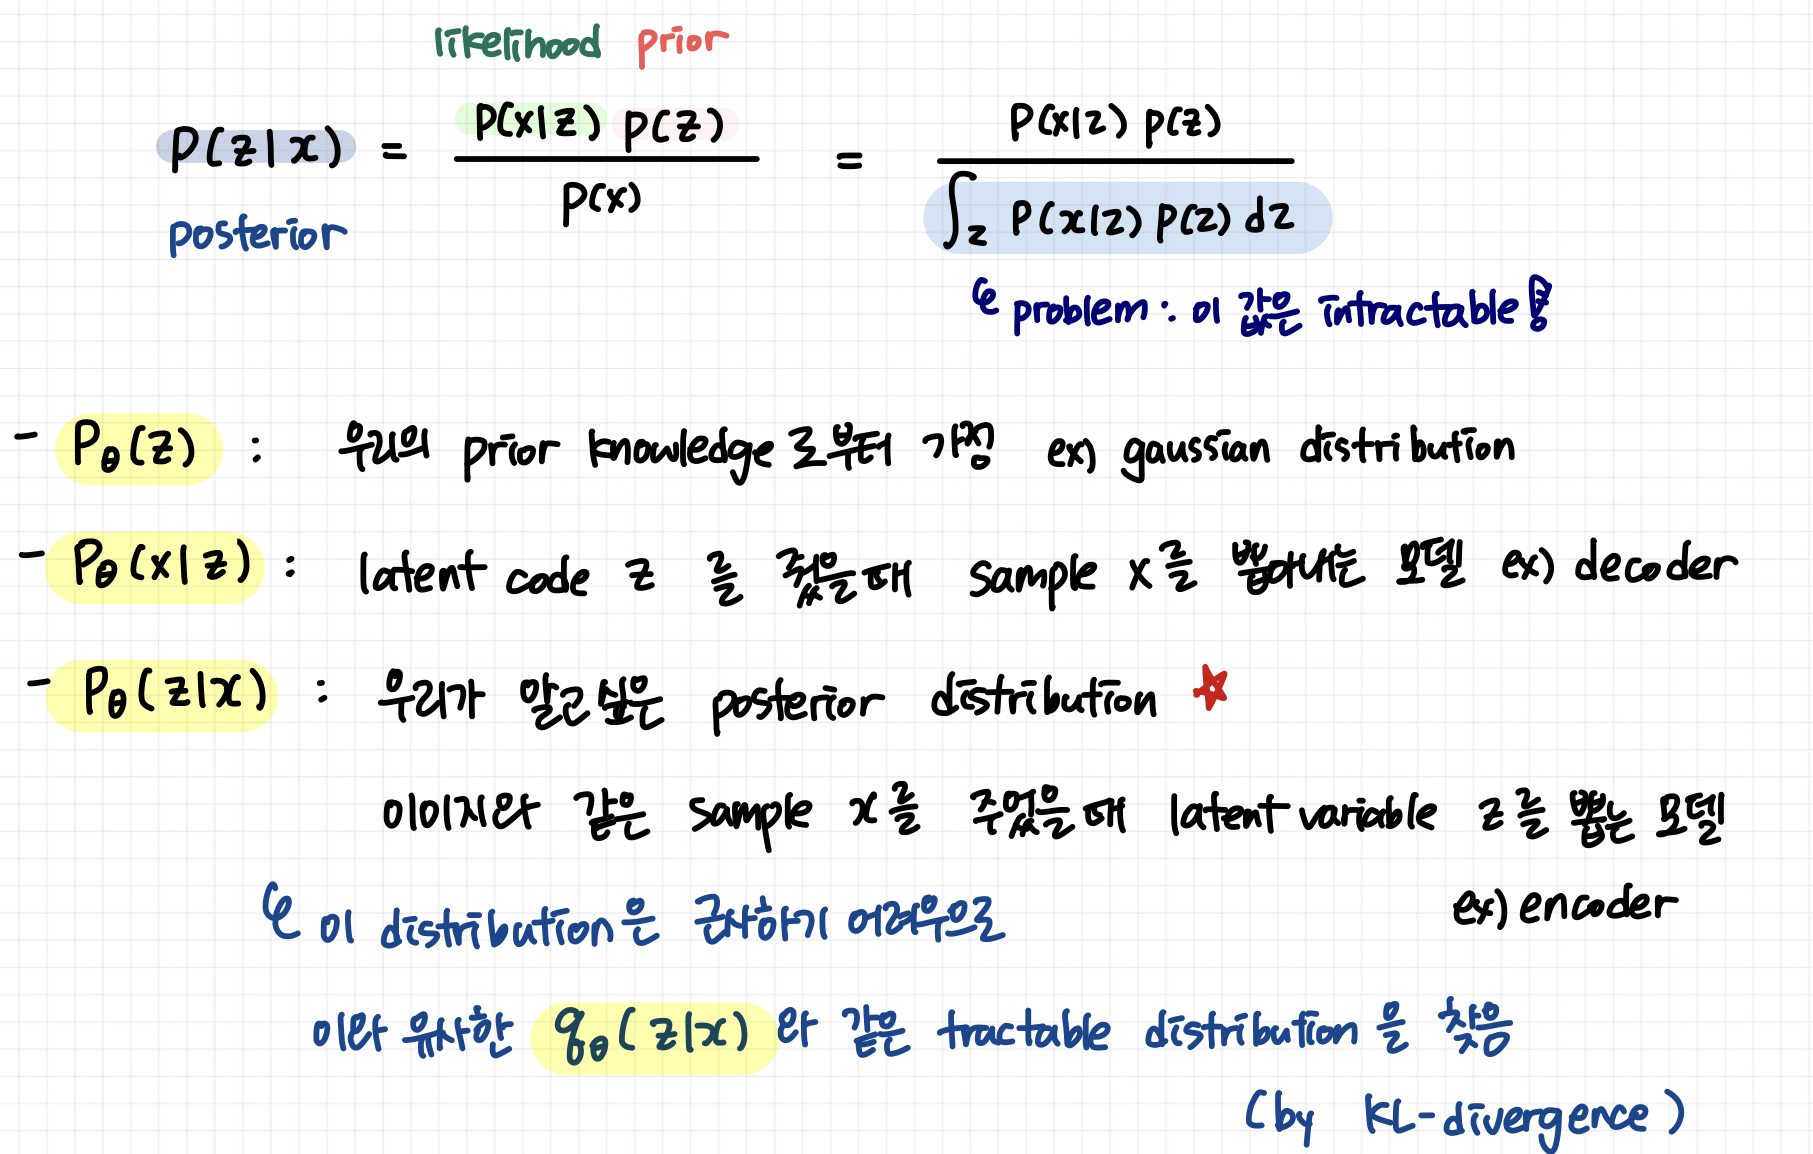 likelihood prior
P(z|x) = P(x|z) p(z) / P(x) = P(x|z) p(z) / ∫_z P(x|z) p(z) dz
posterior
problem : 이 값은 intractable!
- P_θ(z) : 우리의 prior knowledge로부터 가정 ex) gaussian distribution
- P_θ(x|z) : latent code z 를 줬을때 sample x를 뽑아내는 모델 ex) decoder
- P_θ(z|x) : 우리가 알고싶은 posterior distribution ☆
이미지와 같은 sample x를 주었을때 latent variable z를 뽑는 모델
ex) encoder
이 distribution은 근사하기 어려우므로
이와 유사한 q_θ(z|x) 와 같은 tractable distribution을 찾음
(by KL-divergence)